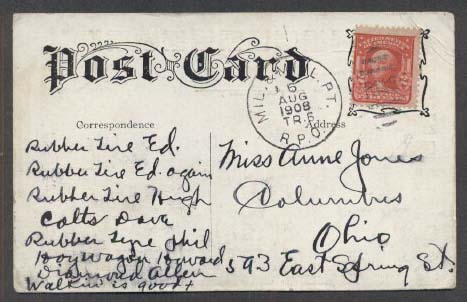 Post Card
MIL. & NEW L. PT.
6
AUG
1908
TR. 6
R.P.O.
Correspondence
Address
Rubber Tire Ed.
Rubber Tire Ed. again
Rubber Tire Hugh
Colts Dave
Rubber Tire Phil
Hay Wagon Howard
Diamond Allen
Walkin is good +
Miss Anne Jones
Columbus
Ohio
593 East Spring St.